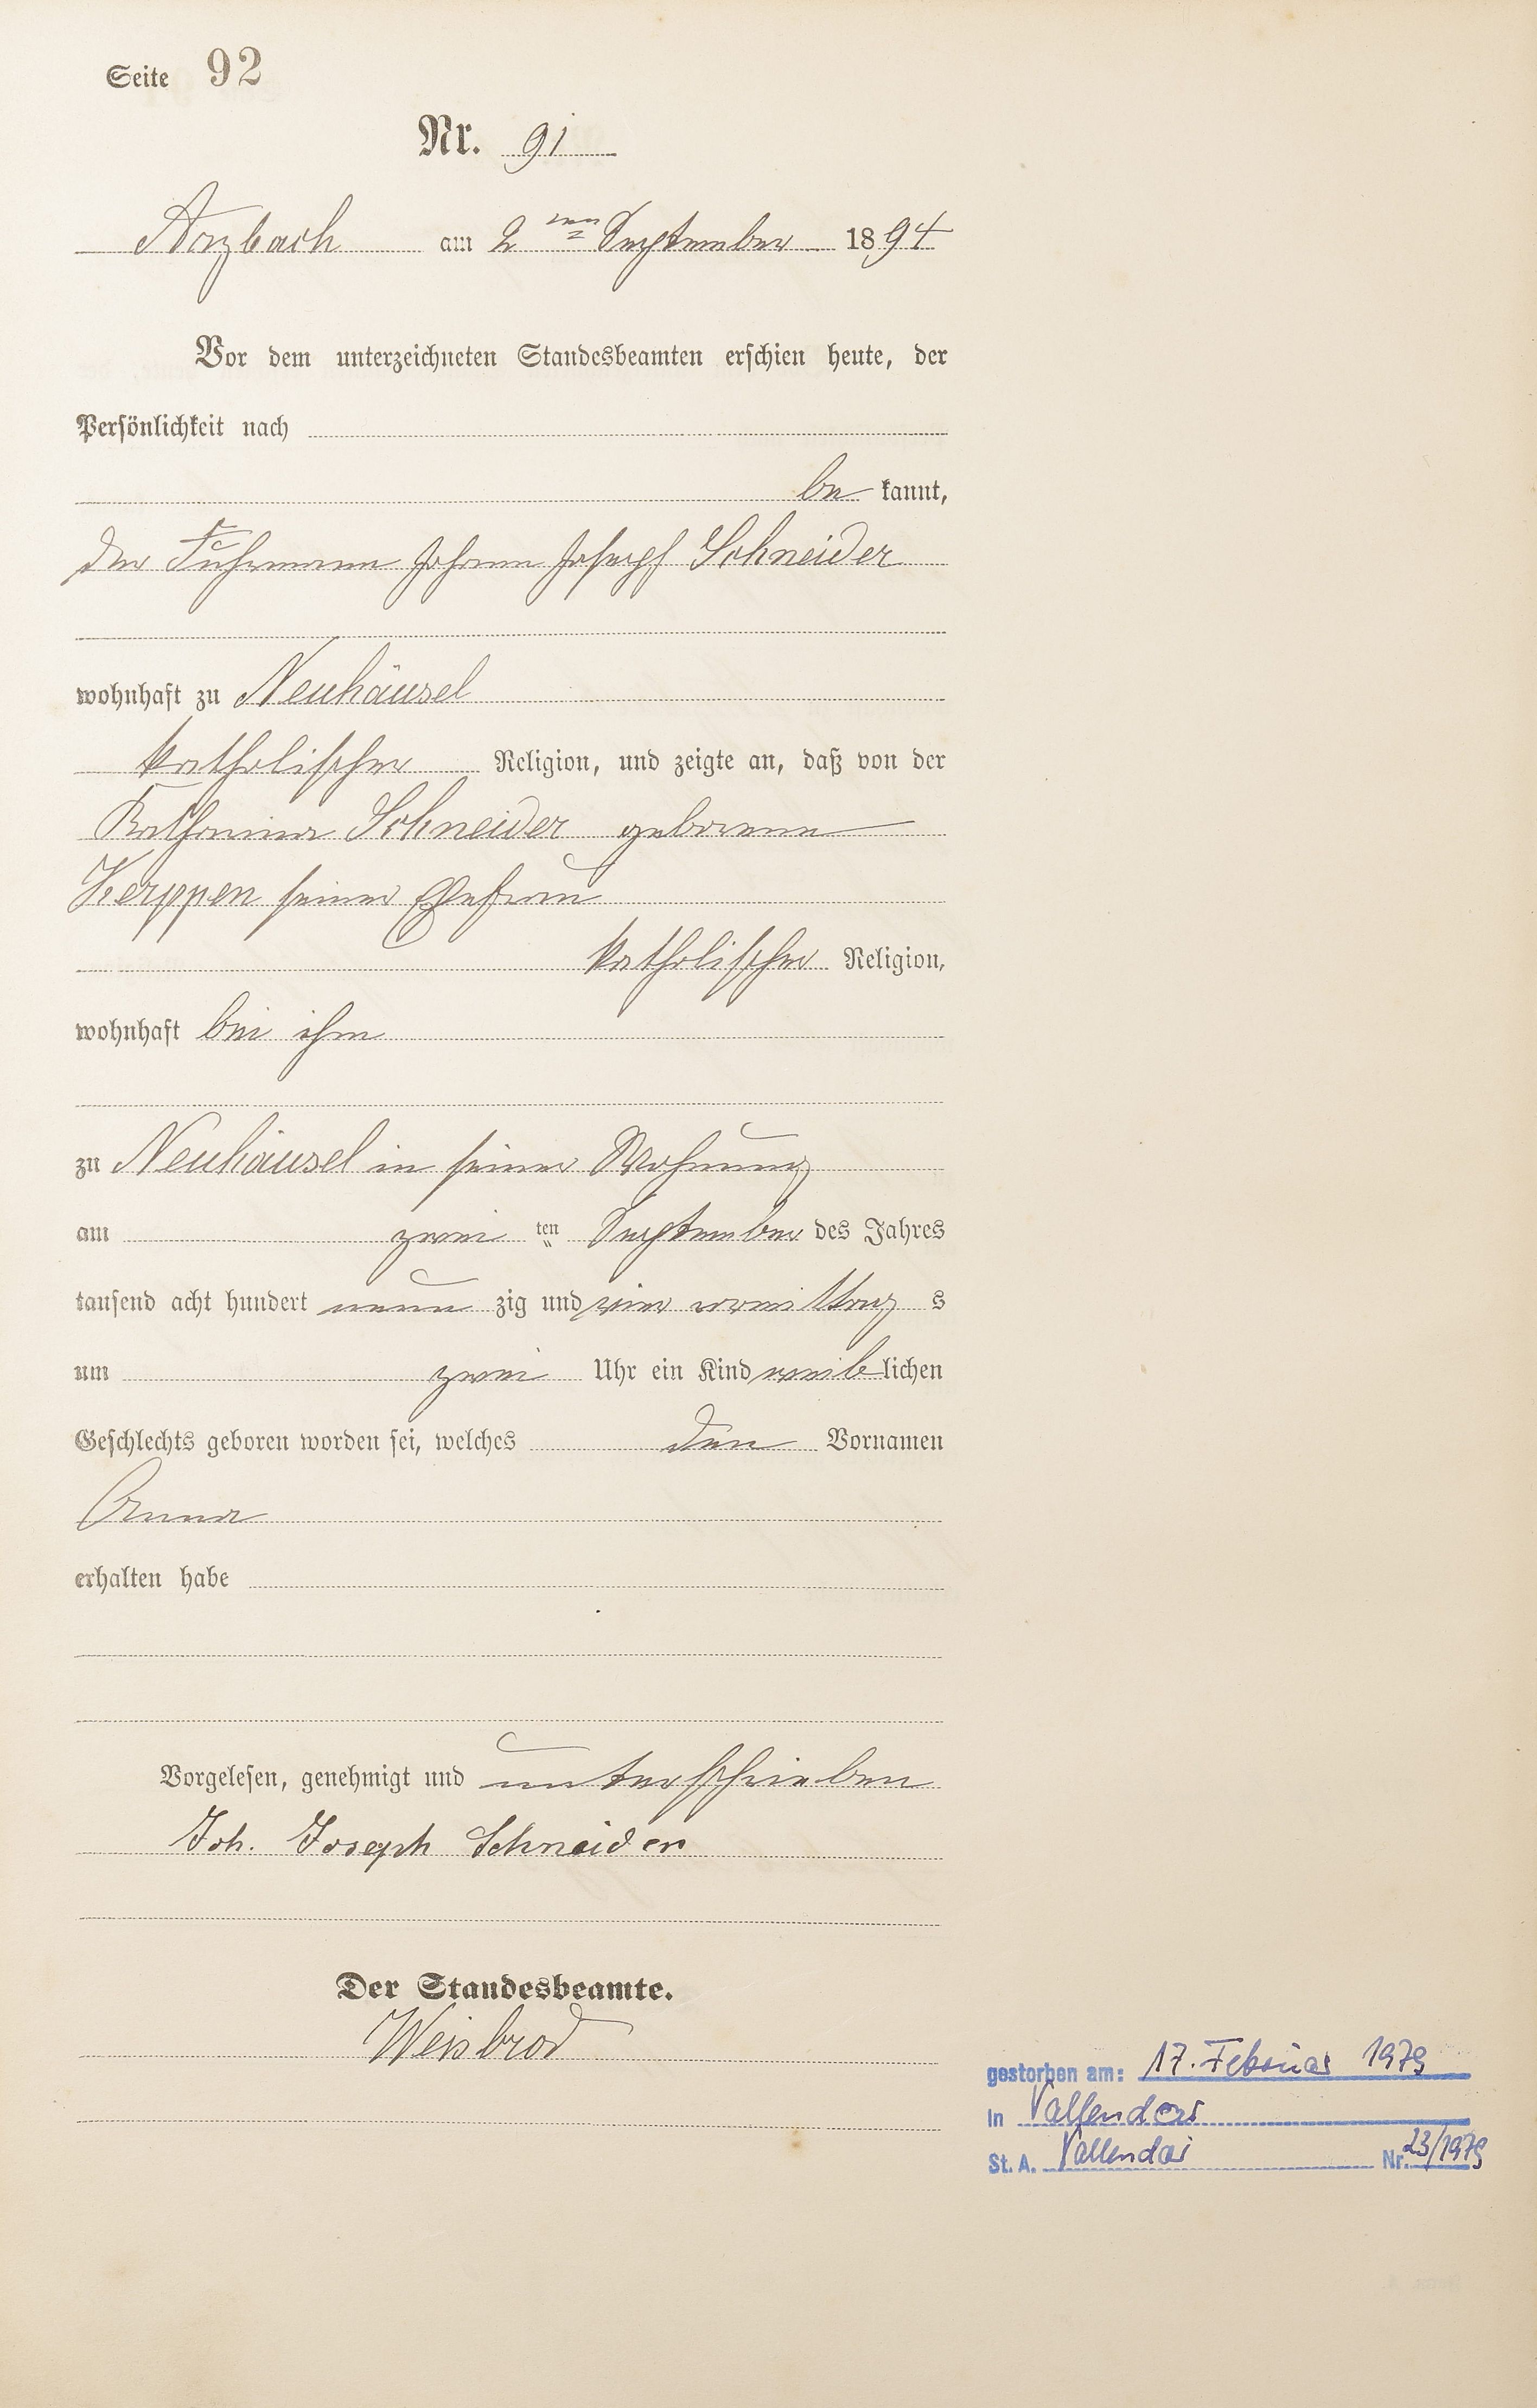 Seite 92
Nr. 91
Arzbach am 2ten September 1894
Vor dem unterzeichneten Standesbeamten erschien heute, der
Persönlichkeit nach
be kannt,
der Fuhrmann Johann Joseph Schneider
wohnhaft zu Neuhäusel
katholischer Religion, und zeigte an, daß von der
Katharina Schneider geborenen
Herppen seiner Ehefrau
katholischer Religion,
wohnhaft bei ihm
zu Neuhäusel in seiner Wohnung
am zwei ten September des Jahres
tausend acht hundert neun zig und vier vormittag s
um zwei Uhr ein Kind weiblichen
Geschlechts geboren worden sei, welches den Vornamen
Anna
erhalten habe
Vorgelesen, genehmigt und unterschrieben
Joh. Joseph Schneider
Der Standesbeamte.
Weisbrod
gestorben am: 17. Februar 1979
in Vallendar
St. A. Vallendar Nr. 23/1979